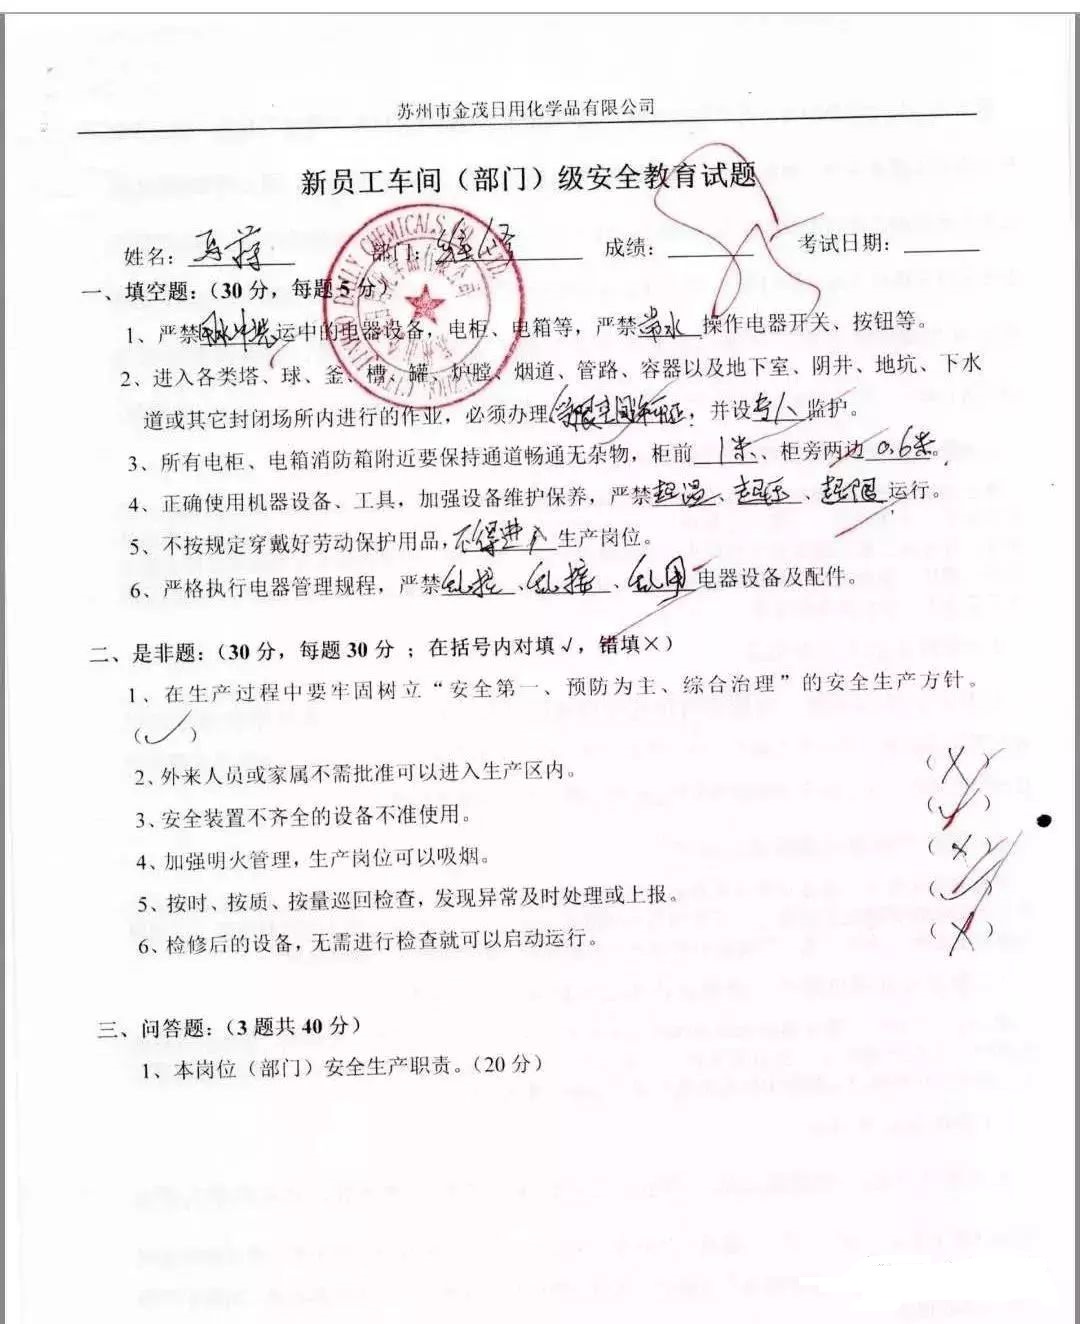 苏州市金茂日用化学品有限公司
新员工车间（部门）级安全教育试题
姓名： 部门：维修 成绩： 考试日期：
一、填空题：（30 分，每题 5 分）
1、严禁用水冲洗运中的电器设备，电柜、电箱等，严禁带水操作电器开关、按钮等。
2、进入各类塔、球、釜、槽、罐、炉膛、烟道、管路、容器以及地下室、阴井、地坑、下水
道或其它封闭场所内进行的作业，必须办理，并设专人监护。
3、所有电柜、电箱消防箱附近要保持通道畅通无杂物，柜前 1米、柜旁两边 0.6米。
4、正确使用机器设备、工具，加强设备维护保养，严禁超温、超压、超限运行。
5、不按规定穿戴好劳动保护用品，不得进入生产岗位。
6、严格执行电器管理规程，严禁乱拉、乱接、乱用电器设备及配件。
二、是非题：（30 分，每题 30 分 ；在括号内对填 √，错填×）
1、在生产过程中要牢固树立“安全第一、预防为主、综合治理”的安全生产方针。
（√）
2、外来人员或家属不需批准可以进入生产区内。 （×）
3、安全装置不齐全的设备不准使用。 （√）
4、加强明火管理，生产岗位可以吸烟。 （×）
5、按时、按质、按量巡回检查，发现异常及时处理或上报。 （√）
6、检修后的设备，无需进行检查就可以启动运行。 （×）
三、问答题：（3 题共 40 分）
1、本岗位（部门）安全生产职责。（20 分）